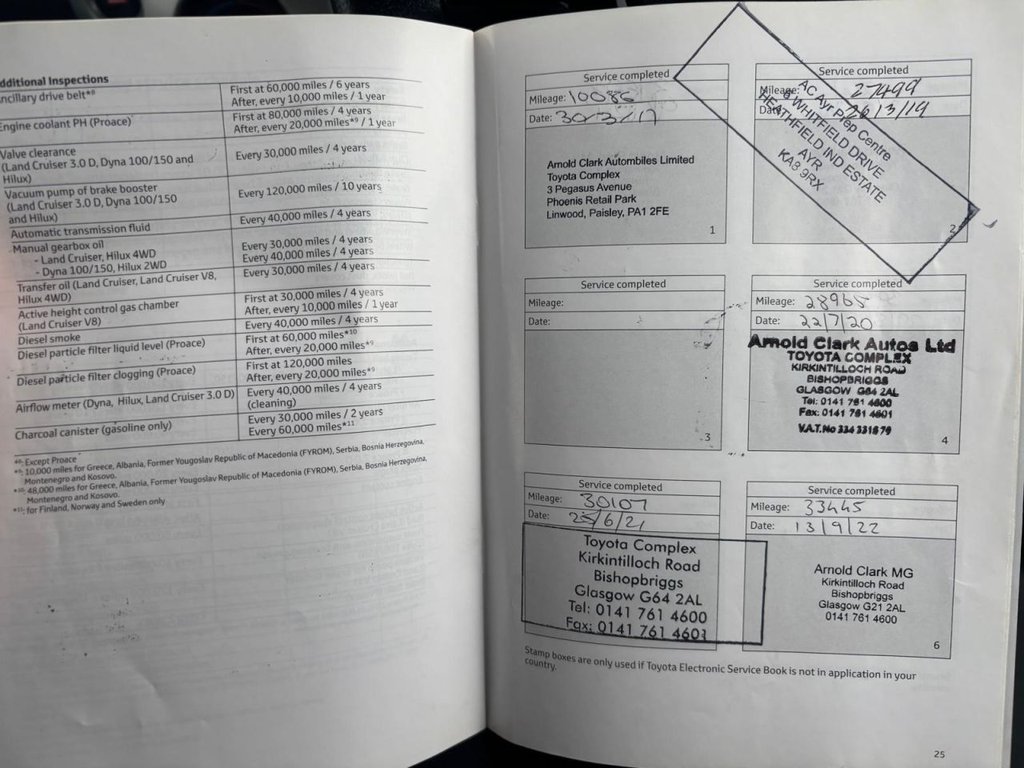 dditional Inspections
ncillary drive belt*⁸ First at 60,000 miles / 6 years
After, every 10,000 miles / 1 year
Engine coolant PH (Proace) First at 80,000 miles / 4 years
After, every 20,000 miles*⁹ / 1 year
Valve clearance
(Land Cruiser 3.0 D, Dyna 100/150 and
Hilux) Every 30,000 miles / 4 years
Vacuum pump of brake booster
(Land Cruiser 3.0 D, Dyna 100/150
and Hilux) Every 120,000 miles / 10 years
Automatic transmission fluid Every 40,000 miles / 4 years
Manual gearbox oil
- Land Cruiser, Hilux 4WD Every 30,000 miles / 4 years
- Dyna 100/150, Hilux 2WD Every 40,000 miles / 4 years
Transfer oil (Land Cruiser, Land Cruiser V8,
Hilux 4WD) Every 30,000 miles / 4 years
Active height control gas chamber
(Land Cruiser V8) First at 30,000 miles / 4 years
After, every 10,000 miles / 1 year
Diesel smoke Every 40,000 miles / 4 years
Diesel particle filter liquid level (Proace) First at 60,000 miles*¹⁰
After, every 20,000 miles*⁹
Diesel particle filter clogging (Proace) First at 120,000 miles
After, every 20,000 miles*⁹
Airflow meter (Dyna, Hilux, Land Cruiser 3.0 D) Every 40,000 miles / 4 years
(cleaning)
Charcoal canister (gasoline only) Every 30,000 miles / 2 years
Every 60,000 miles*¹¹
*⁸: Except Proace
*⁹: 10,000 miles for Greece, Albania, Former Yougoslav Republic of Macedonia (FYROM), Serbia, Bosnia Herzegovina,
Montenegro and Kosovo.
*¹⁰: 48,000 miles for Greece, Albania, Former Yougoslav Republic of Macedonia (FYROM), Serbia, Bosnia Herzegovina,
Montenegro and Kosovo.
*¹¹: for Finland, Norway and Sweden only
Service completed
Mileage: 10086
Date: 30/3/17
Arnold Clark Autombiles Limited
Toyota Complex
3 Pegasus Avenue
Phoenis Retail Park
Linwood, Paisley, PA1 2FE
1
Service completed
Mileage: 27499
Date: 26/3/19
AC Ayr Prep Centre
WHITFIELD DRIVE
HEATHFIELD IND ESTATE
AYR
KA8 9RX
2
Service completed
Mileage:
Date:
3
Service completed
Mileage: 28965
Date: 22/7/20
Arnold Clark Autos Ltd
TOYOTA COMPLEX
KIRKINTILLOCH ROAD
BISHOPBRIGGS
GLASGOW G64 2AL
Tel: 0141 761 4600
Fax: 0141 761 4601
V.A.T. No 334 3316 79
4
Service completed
Mileage: 30107
Date: 25/6/21
Toyota Complex
Kirkintilloch Road
Bishopbriggs
Glasgow G64 2AL
Tel: 0141 761 4600
Fax: 0141 761 4601
Service completed
Mileage: 33445
Date: 13/9/22
Arnold Clark MG
Kirkintilloch Road
Bishopbriggs
Glasgow G21 2AL
0141 761 4600
6
Stamp boxes are only used if Toyota Electronic Service Book is not in application in your
country.
25